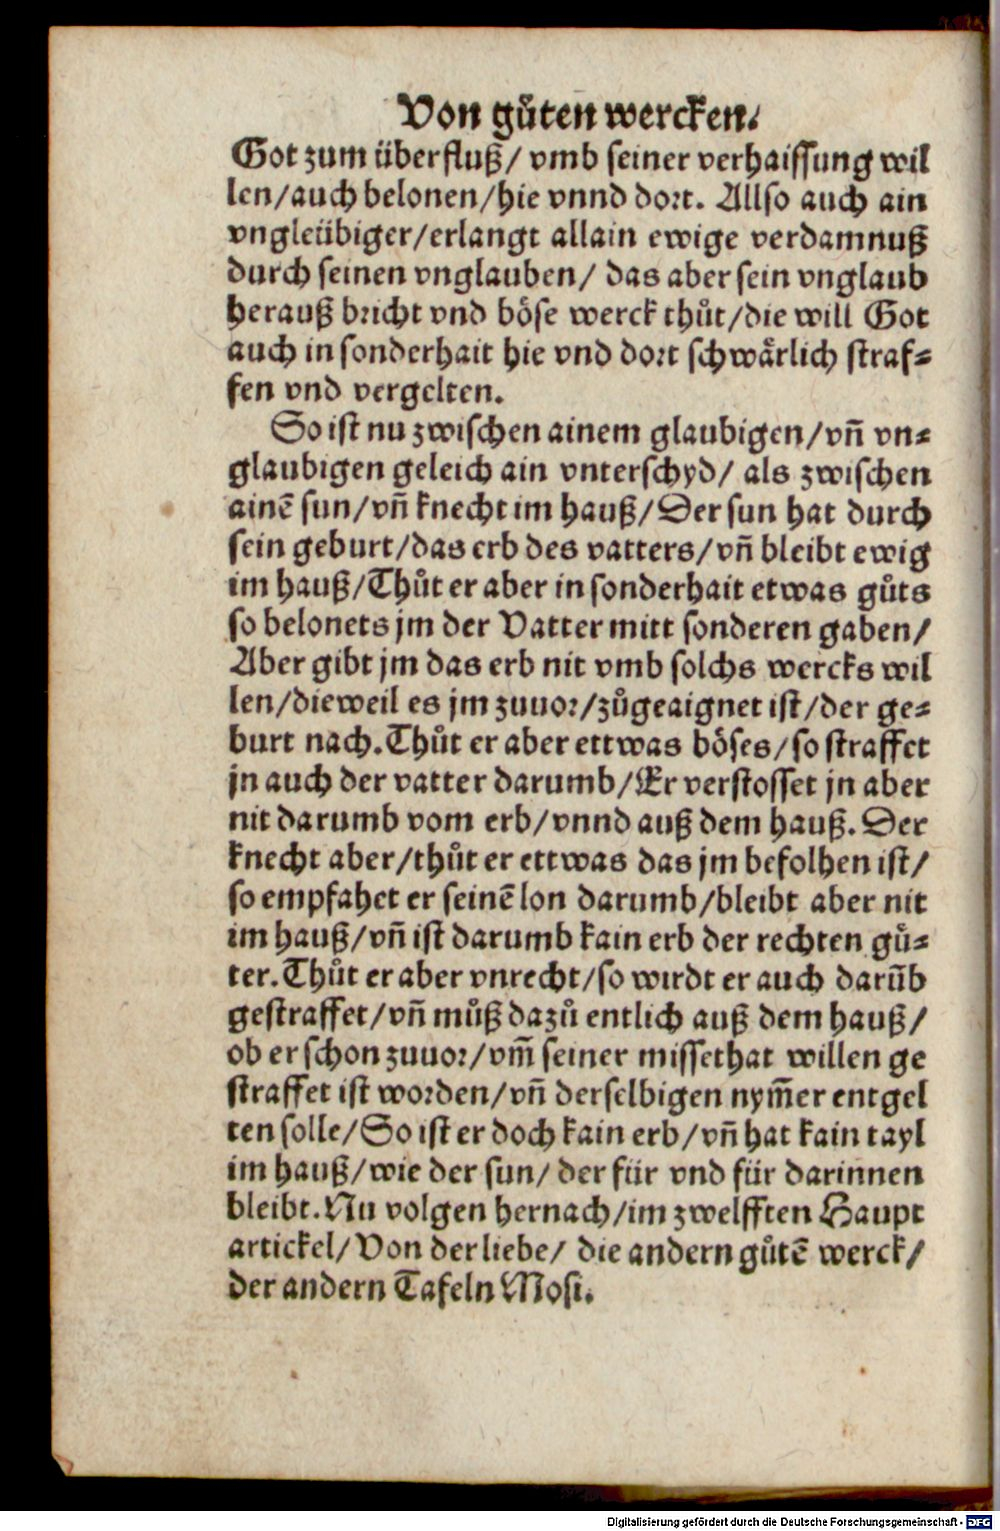 Von gůten wercken.
Got zum überfluß/ vmb seiner verhaissung wil
len/auch belonen/hie vnnd dort. Allso auch ain
vngleübiger/erlangt allain ewige verdamnuß
durch seinen vnglauben/ das aber sein vnglaub
herauß bricht vnd böse werck thůt/die will Got
auch in sonderhait hie vnd dort schwärlich straf⸗
fen vnd vergelten.
So ist nu zwischen ainem glaubigen/vñ vn⸗
glaubigen geleich ain vnterschyd/ als zwischen
ainẽ sun/vñ knecht im hauß/Der sun hat durch
sein geburt/das erb des vatters/vñ bleibt ewig
im hauß/Thůt er aber in sonderhait etwas gůts
so belonets jm der Vatter mitt sonderen gaben/
Aber gibt jm das erb nit vmb solchs wercks wil
len/dieweil es jm zuuor/zůgeaignet ist/der ge⸗
burt nach.Thůt er aber ettwas böses/so straffet
jn auch der vatter darumb/Er verstosset jn aber
nit darumb vom erb/vnnd auß dem hauß. Der
knecht aber/thůt er ettwas das jm befolhen ist/
so empfahet er seinẽ lon darumb/bleibt aber nit
im hauß/vñ ist darumb kain erb der rechten gů⸗
ter.Thůt er aber vnrecht/so wirdt er auch darũb
gestraffet/vñ můß dazů entlich auß dem hauß/
ob er schon zuuor/vm̃ seiner missethat willen ge
straffet ist worden/vñ derselbigen nym̃er entgel
ten solle/So ist er doch kain erb/vñ hat kain tayl
im hauß/wie der sun/ der für vnd für darinnen
bleibt.Nu volgen hernach/im zwelfften Haupt
artickel/Von der liebe/ die andern gůtẽ werck/
der andern Tafeln Mosi.
Digitalisierung gefördert durch die Deutsche Forschungsgemeinschaft - DFG